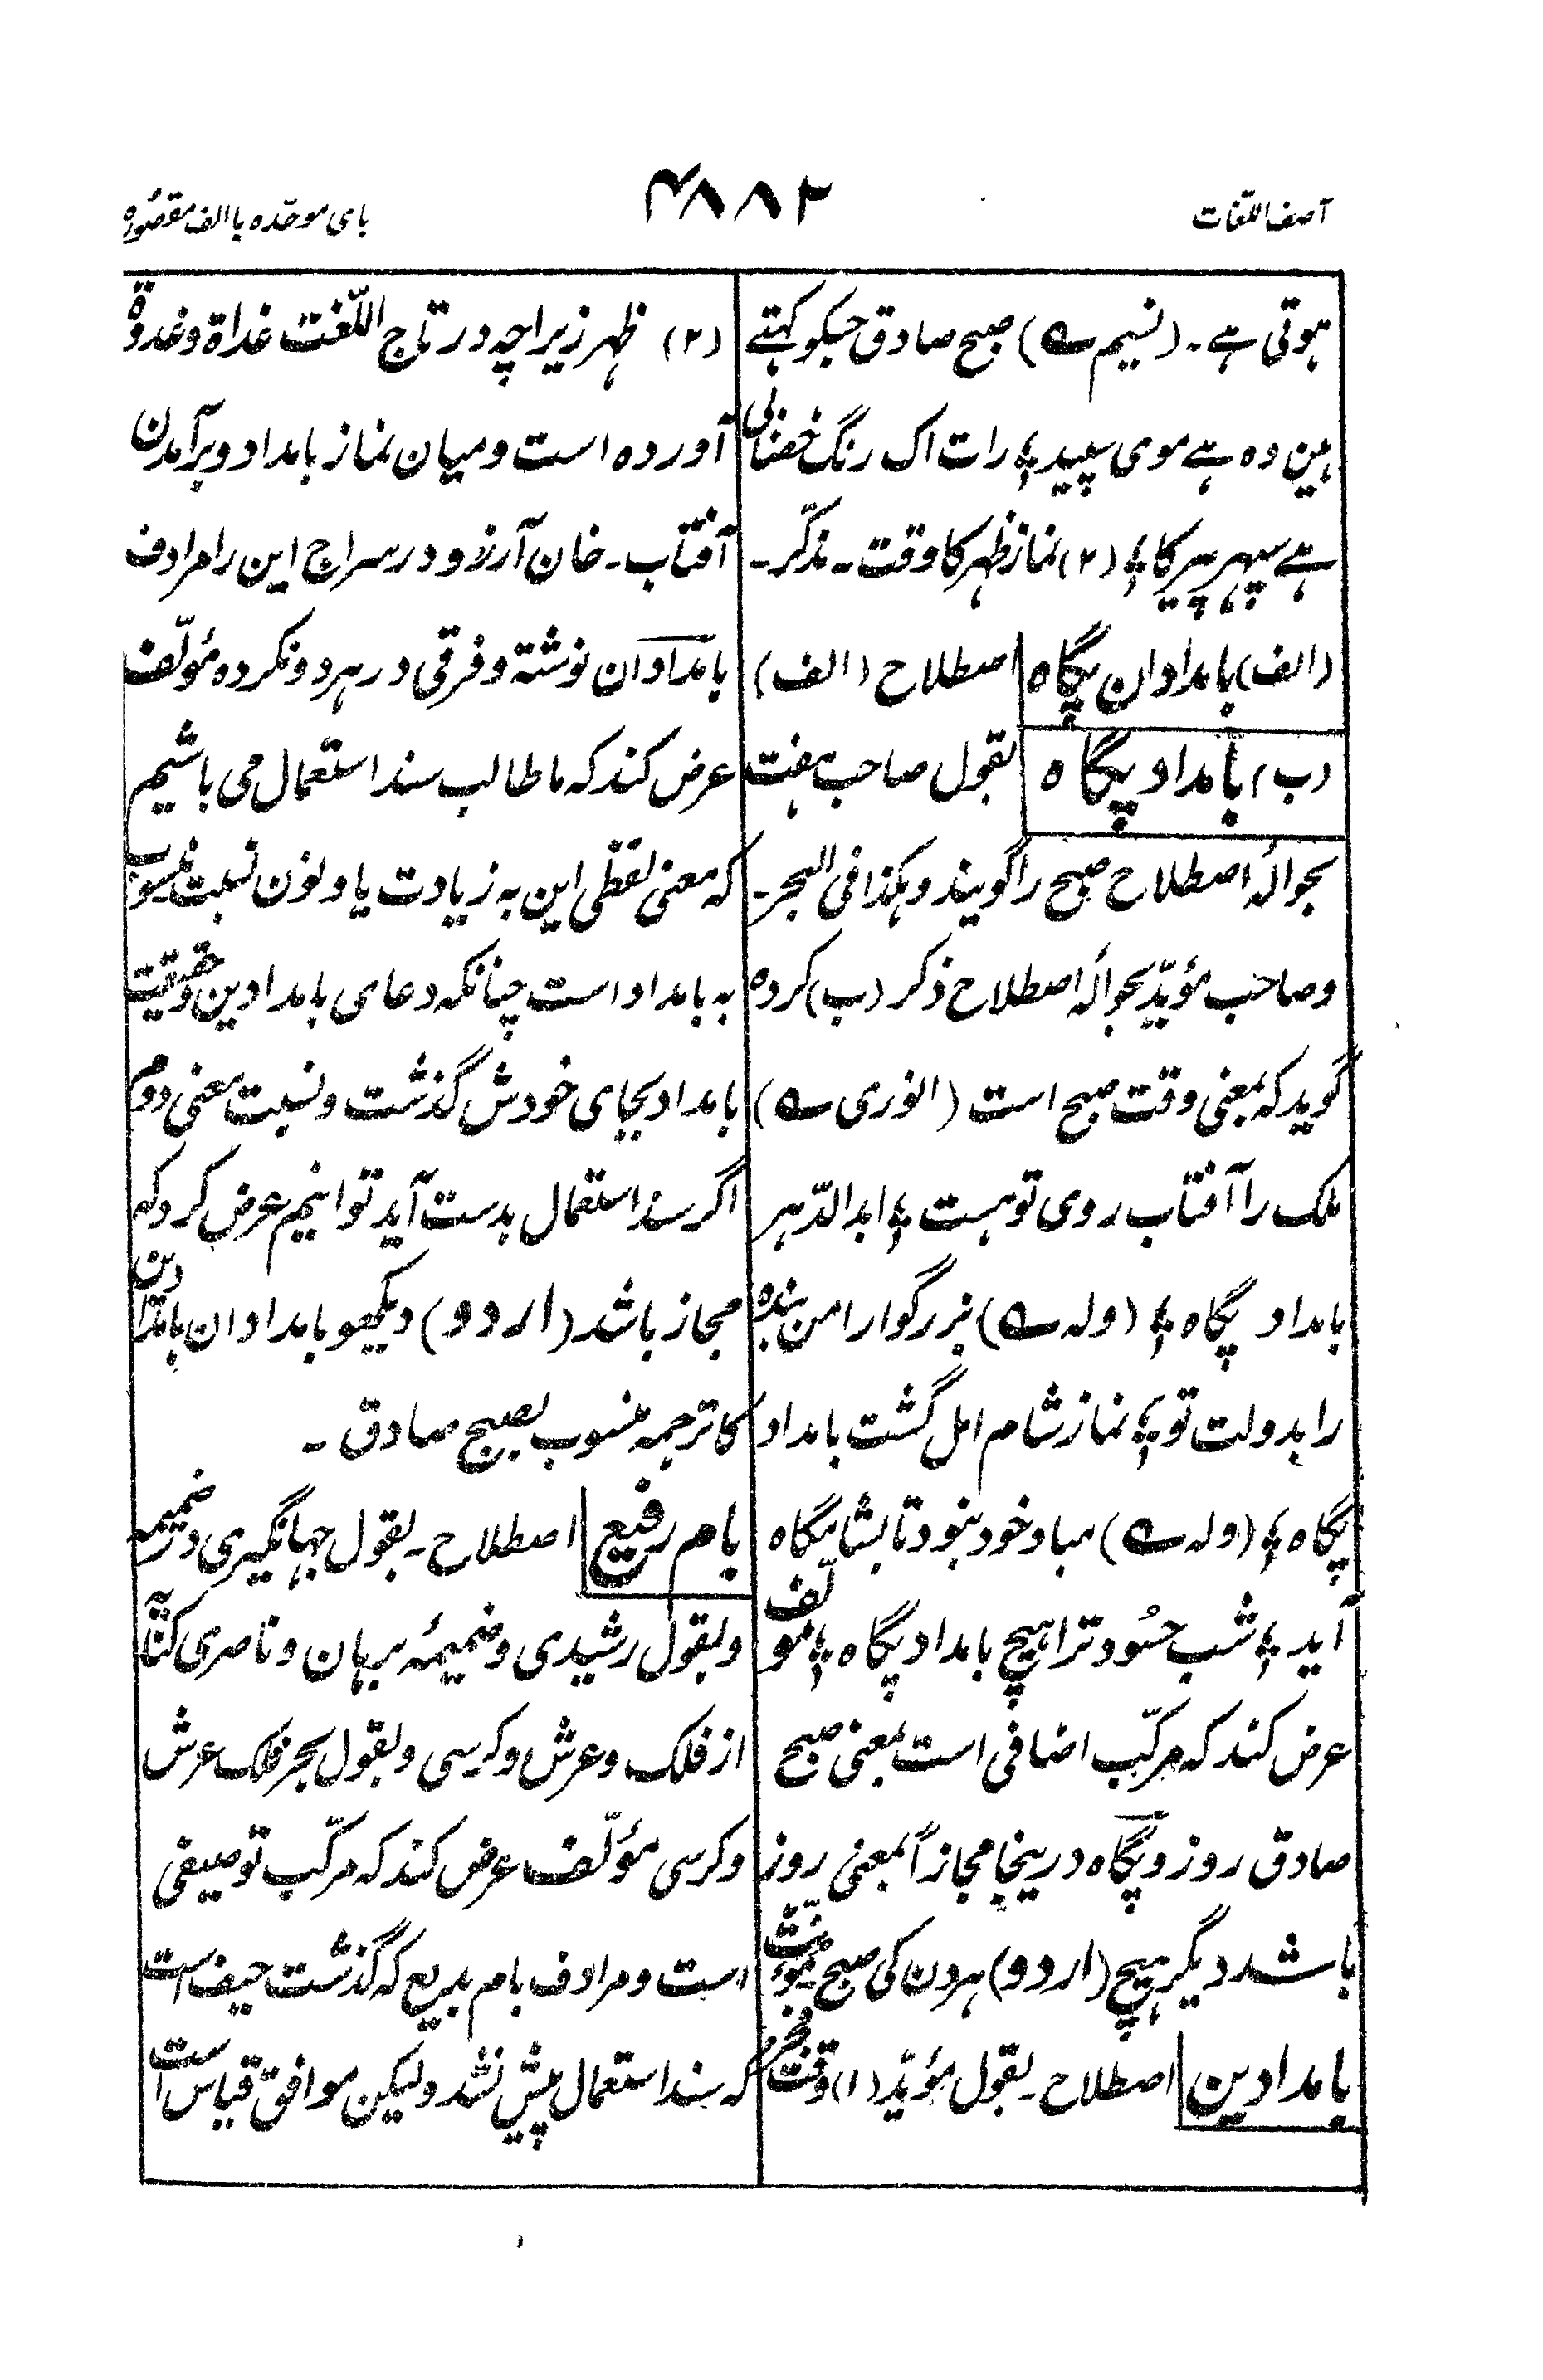 آصف اللغات
۴۸۸۲
بای موحّده با الف مقصوره
ہوتی ہے۔ (نسیم ؎) صبح صادق جسکو کہتے
ہین وہ ہے موی سپید ؛ رات اک رنگ خضابی
ہے سپہر پیر کا ؛ (۲) نماز ظہر کا وقت۔ مذکّر۔
(الف) بامدادان پگاه اصطلاح (الف)
(ب) بامداد پگاه بقول صاحب ہفت
بحوالۂ اصطلاح صبح را گویند و ہکذا فی البحر۔
و صاحب مؤیّد بحوالۂ اصطلاح ذکر (ب) کرده
گوید کہ بمعنی وقت صبح است (انوری ؎)
ملک را آفتاب روی تو ہست ؛ ابد الدّہر
بامداد پگاه ؛ (ولہ ؎) بزرگوارا من بنده
را بدولت تو ؛ نماز شام امل گشت بامداد
پگاه ؛ (ولہ ؎) مباد خود بنود تا بشامگاه
آید ؛ شب حسُود ترا ہیچ بامداد پگاه ؛ مولّف
عرض کند کہ مرکّب اضافی است بمعنی صبح
صادق روز و پگاه درینجا مجازاً بمعنی روز
باشد دیگر ہیچ (اردو) ہر دن کی صبح۔ مؤنّث
بامدادین اصطلاح۔ بقول مؤیّد (۱) وقت فجر و
(۲) ظہر زیراچہ در تاج اللّغت غداة و غدوة
آورده است و میان نماز بامداد و برآمدن
آفتاب۔ خان آرزو در سراج این را مرادف
بامدادان نوشتہ و فرقی در ہر دو نکرده مؤلّف
عرض کند کہ ما طالب سند استعمال می باشیم
کہ معنی لفظی این بہ زیادت یا و نون نسبت منسوب
بہ بامداد است چنانکہ دعای بامدادین و حقیقت
بامداد بجای خودش گذشت و نسبت معنی دوم
اگر سند استعمال بدست آید توانیم عرض کرد کہ
مجاز باشد (اردو) دیکھو بامدادان بامدادین
کا ترجمہ منسوب بصبح صادق۔
بام رفیع اصطلاح۔ بقول جہانگیری در ضمیمہ
و بقول رشیدی و ضمیمۂ برہان و ناصری کنایہ
از فلک و عرش و کرسی و بقول بحر فلک عرش
و کرسی مؤلّف عرض کند کہ مرکّب توصیفی
است و مرادف بام بدیع کہ گذشت حیف است
کہ سند استعمال پیش نشد ولیکن موافق قیاس است